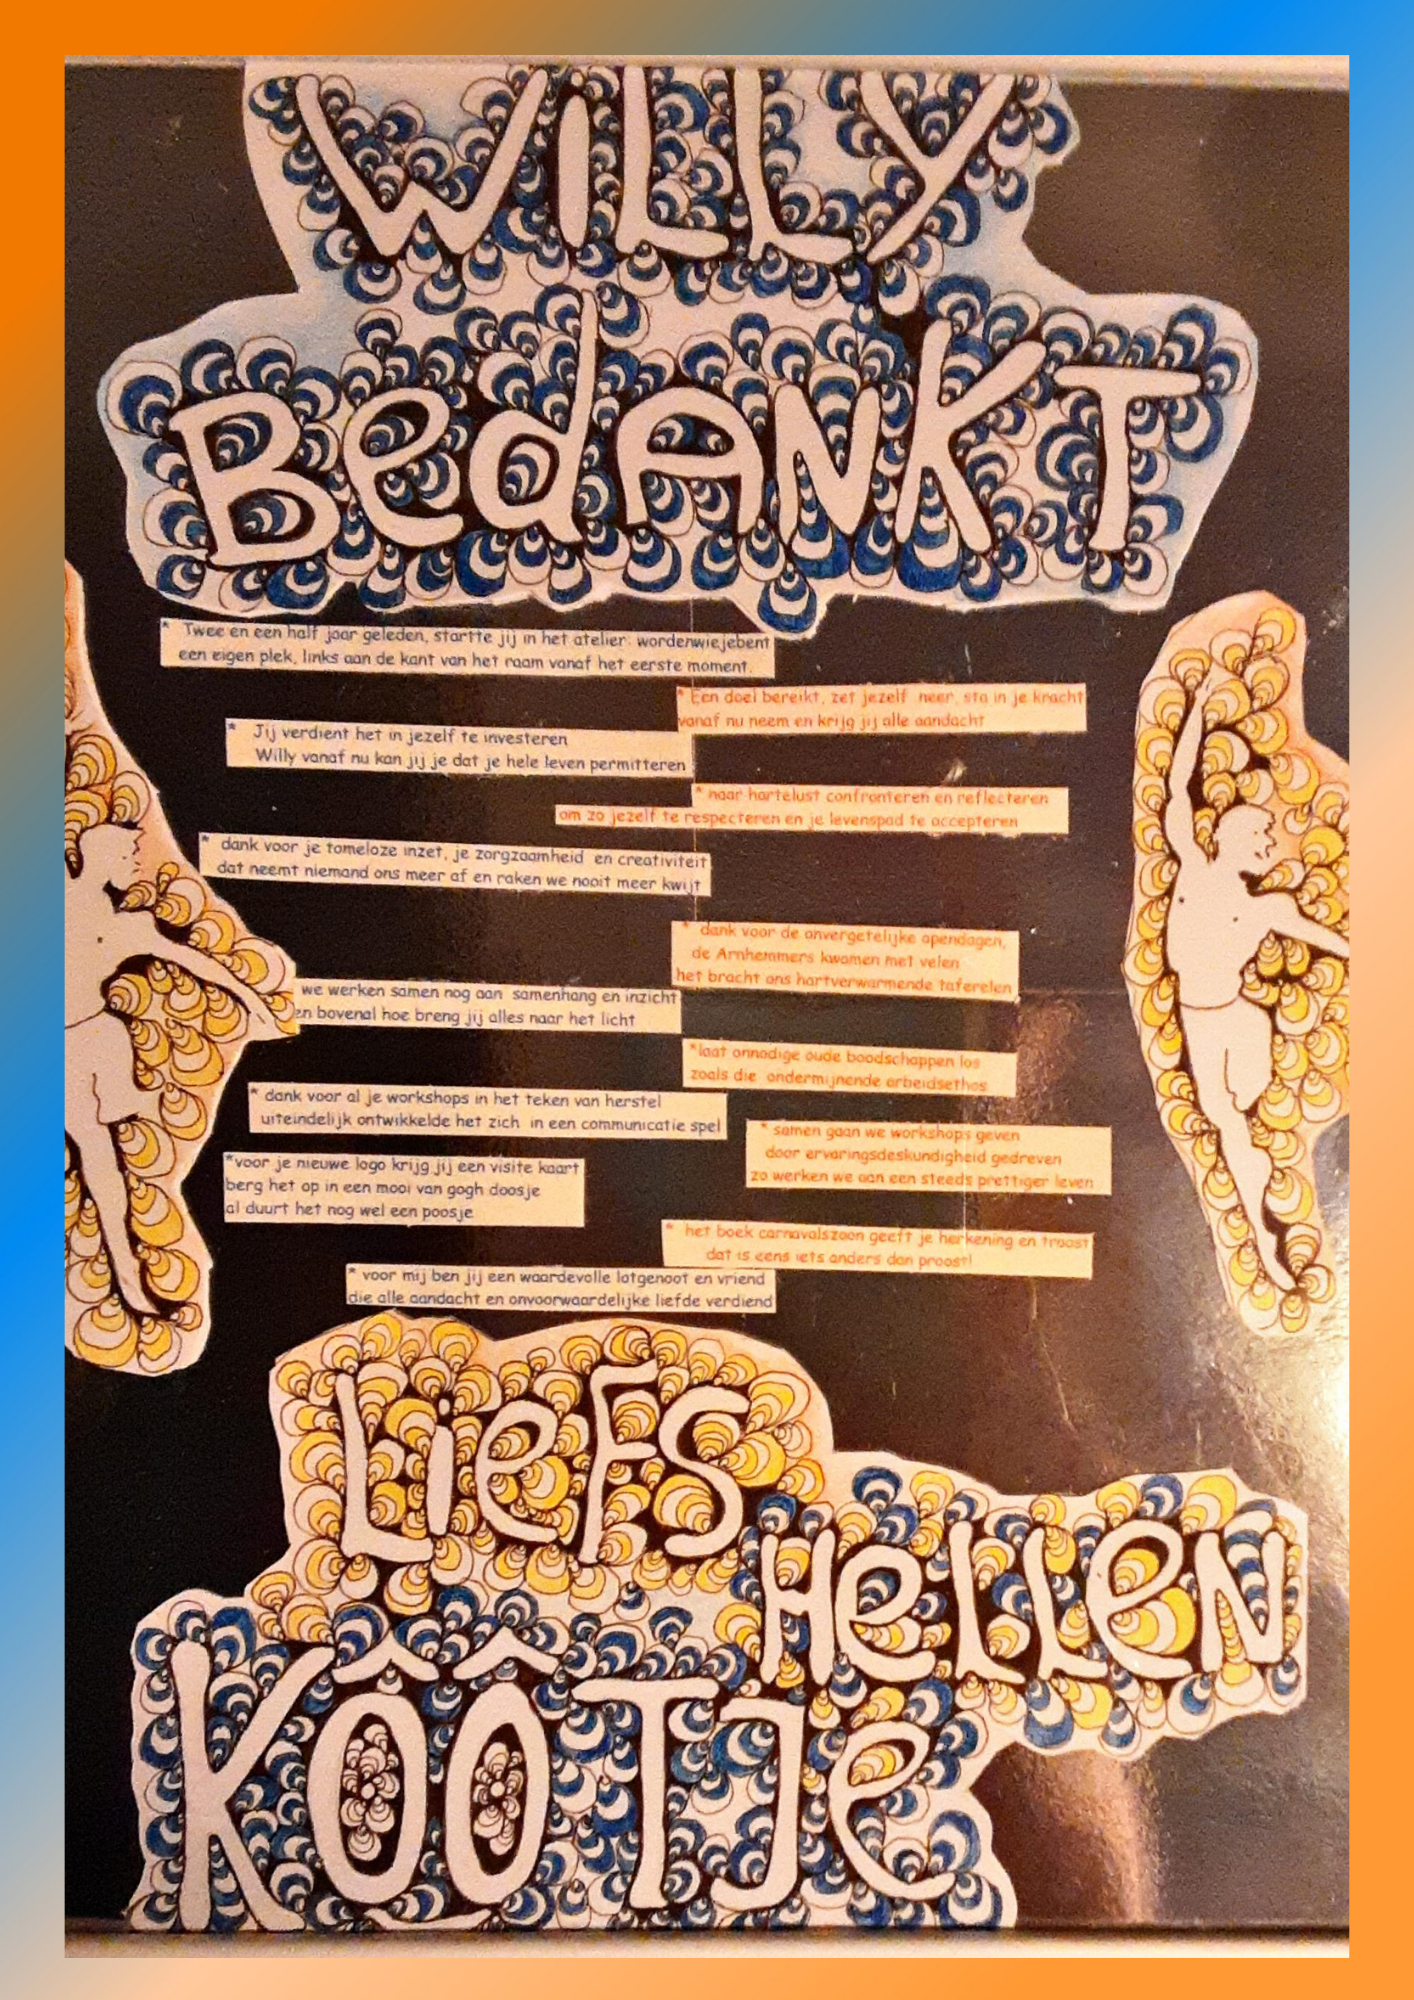 WiLLY
BedANKT
* Twee en een half jaar geleden, startte jij in het atelier: wordenwiejebent
een eigen plek, links aan de kant van het raam vanaf het eerste moment.
* Een doel bereikt, zet jezelf neer, sta in je kracht
vanaf nu neem en krijg jij alle aandacht
* Jij verdient het in jezelf te investeren
Willy vanaf nu kan jij je dat je hele leven permitteren
* naar hartelust confronteren en reflecteren
om zo jezelf te respecteren en je levenspad te accepteren
* dank voor je tomeloze inzet, je zorgzaamheid en creativiteit
dat neemt niemand ons meer af en raken we nooit meer kwijt
* dank voor de onvergetelijke opendagen,
de Arnhemmers kwamen met velen
het bracht ons hartverwarmende taferelen
we werken samen nog aan samenhang en inzicht
en bovenal hoe breng jij alles naar het licht
*laat onnodige oude boodschappen los
zoals die ondermijnende arbeidsethos
* dank voor al je workshops in het teken van herstel
uiteindelijk ontwikkelde het zich in een communicatie spel
* samen gaan we workshops geven
door ervaringsdeskundigheid gedreven
zo werken we aan een steeds prettiger leven
*voor je nieuwe logo krijg jij een visite kaart
berg het op in een mooi van gogh doosje
al duurt het nog wel een poosje
* het boek carnavalszoon geeft je herkening en troost
dat is eens iets anders dan proost!
* voor mij ben jij een waardevolle lotgenoot en vriend
die alle aandacht en onvoorwaardelijke liefde verdiend
LieFS
HeLLeN
KÔÔTJe